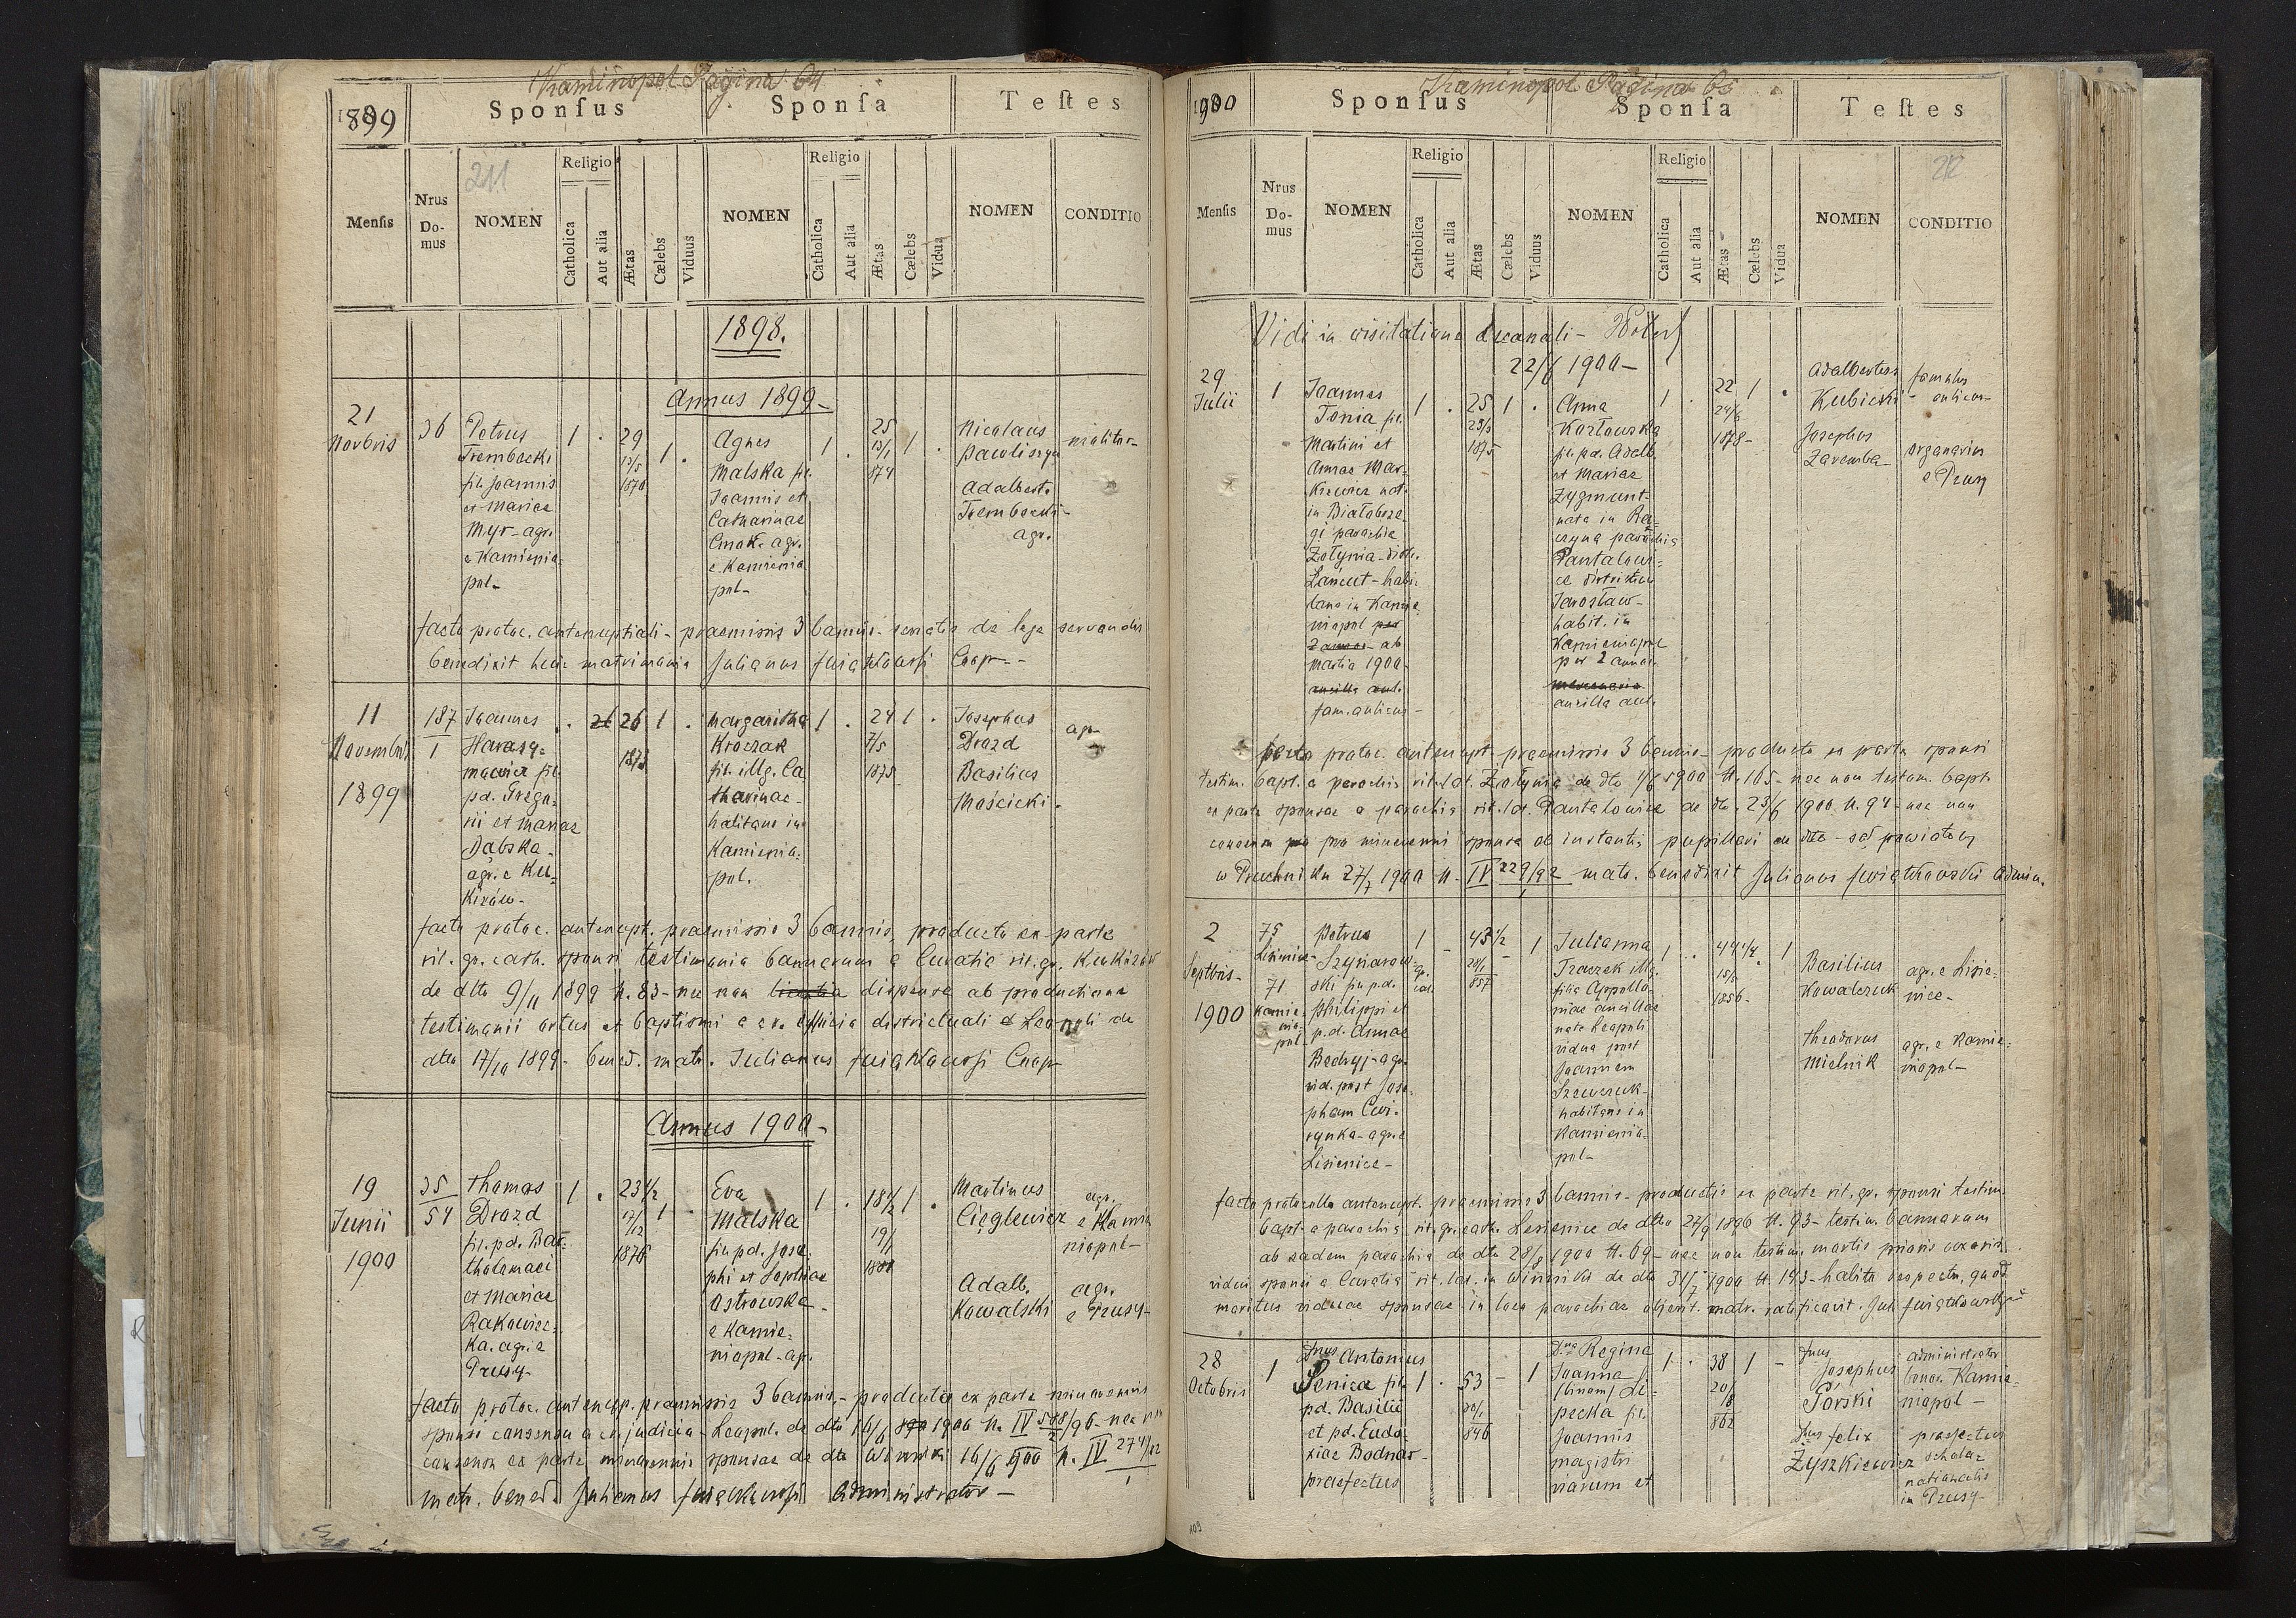 Kamienopol Pagina 64
1899
Sponſus
Sponſa
Teſtes
211
Menſis
Nrus Do-mus
NOMEN
Religio
Catholica
Aut alia
Ætas
Cælebs
Viduus
NOMEN
Religio
Catholica
Aut alia
Ætas
Cælebs
Vidua
NOMEN
CONDITIO
1898.
Annus 1899-
21
Novbris
36
Petrus
Trembecki
fil. Joannis
et Mariae
Myr- agr.
e Kamienio=
pol-
1
29
13/5
1870
1
Agnes
Malska fil.
Joannis et
Catharinae
Cmok- agr.
e Kamienio
pol-
1
25
13/1
874
1
Nicolaus
Pawliszyn
Adalbert.
Trembecki-
agr.
facto protoc. antenuptiali- praemissis 3 bannis- servatis de lege servandis
benedixit huic matrimonio Julianus Świątkowski Coop.-
11
Novembris
1899
187
1
Joannes
Harasy=
mowicz fil.
pd. Grego=
rii et Mariae
Dąbska-
agr. e Ku=
kizów-
26
1873
1
Margaritha
Kroczak
fil. illg. Ca
tharinae-
habitans in
Kamienio=
pol.
1
24
7/5
1875
1
Josephus
Drozd
Basilius
Mościcki-
agr.
facto protoc. antenupt. praemissis 3 bannis, producto ex parte
rit. gr. cath. sponsi testimonio bannorum a Curatia rit. gr. Kukizów
de dto 9/11 1899 N. 83- nec non dispensa ab productione
testimonii ortus et baptismi a c. r. officio districtuali Leopoli de
dto 17/10 1899- bened. matr. Julianus Świątkowski Coop-
Annus 1900-
19
Junii
1900
35
54
Thomas
Drozd
fil. pd. Bar=
tholomaei
et Mariae
Rakowiec=
ka. agr. e
Prusy-
1
23 1/2
17/12
1876
1
Eva
Malska
fil. pd. Jose=
phi et Sophiae
Ostrowska-
e Kamie=
niopol- agr.
1
18 1/2
19/1
1
Martinus
Cieglewicz
agr.
e Kamie
niopol-
Adalb.
Kowalski
agr.
e Prusy-
facto protoc. antenup. praemissis 3 bannis,- producto ex parte minorennis
sponsi consensu a c. r. judicio- Leopol. de dto 16/6 1900 N. IV 508/96- nec non
consensu ex parte minorennis sponsae de dto Winniki 16/6 900 N. IV 274/82
matr. bened. Julianus Świątkowski Administrator-
Kamienopol Pagina 65
1900
Sponſus
Sponſa
Teſtes
212
Menſis
Nrus Do-mus
NOMEN
Religio
Catholica
Aut alia
Ætas
Cælebs
Viduus
NOMEN
Religio
Catholica
Aut alia
Ætas
Cælebs
Vidua
NOMEN
CONDITIO
Vidi in visitatione decanali-
22/6 1900-
29
Julii
1
Joannes
Tonia fil.
Martini et
Annae Mar=
kiewicz nat.
in Białobrze
gi parochia
Żołynia- distr.
Łańcut- habi=
tans in Kamie
niopol per
2 annos- ab
Martio 1900-
ancilla aul.
fam. aulicus-
1
25
1875
1
Anna
Kozłowska
fil. pd. Adalb.
et Mariae
Zygmunt-
nata in Ra=
czyna parochia
Pantalowi=
ce districtus
Jarosław-
habit. in
Kamieniopol
per 2 annos-
ancilla aul.
1
22
24/6
1878-
1
Adalbertus
Kubicki
famulus
aulicus-
Josephus
Zaremba-
organarius
e Prusy
facto protoc. antenupt. praemissis 3 bannis- producto ex parte sponsi
testim. bapt. a parochia rit. lat. Żołynia de dto 4/6 1900 N. 105- nec non testim. bapt.
ex parte sponsae a parochia rit. lat. Pantalowice de dto. 25/6 1900. N. 94- nec non
consensu pro minorenni sponsa ab instantia pupillari de dto- sąd powiatowy
w Pruchniku 27/7 1900 N- IV 229/92 matr. benedixit Julianus Świątkowski Admin.
2
Septbris-
1900
75
Lisienice-
71
Kamie=
nio=
pol-
Petrus
Szynarow=
ski fil. p.d.
Philippi et
p.d. Annae
Bedryj- agr.
vid. post Jose=
pham Cwi=
rynka- agr. e
Lisienice-
1
43 1/2
857
1
Julianna
Traczek illg.
filia Appollo=
niae ancillae
nata Leopoli
vidua post
Joannem
Szewczuk-
habitans in
Kamienio=
pol-
1
44 1/2
15/5
1856-
1
Basilius
Kowalczuk
agr. e Lisie=
nice-
Theodorus
Mielnik
agr. e Kamie=
niopol-
facto protocollo antenupt. praemissis 3 bannis- productis ex parte rit. gr. sponsi testim.
bapt. a parochia rit. gr. cath. Lesienice de dto 27/9 1896 N. 93- testim. bannorum
ab eadem parochia de dto 28/8 1900 N. 69- nec non testim. mortis prioris uxoris
vidui sponsi a Curatia rit. lat. in Winniki de dto 31/7 1900 N. 193- habito respectu, quod
maritus viduae sponsae in loco parochiae objerit. matr. ratificavit. Jul. Świątkowski
28
Octobris
1
Dnus Antonius
Senica fil.
pd. Basilii
et pd. Eudo=
xiae Bodnar-
praefectus
1
53
846
1
Dna Regina
Joanna
(binom) Li=
pecka fil.
Joannis
magistri
viarum et
1
38
20/8
862
1
Dnus
Josephus
Pórski
administrator
bonor. Kamie=
niopol-
Dnus Felix
Zyszkiewicz
praefectus
scholae
nationalis
in Prusy-
103